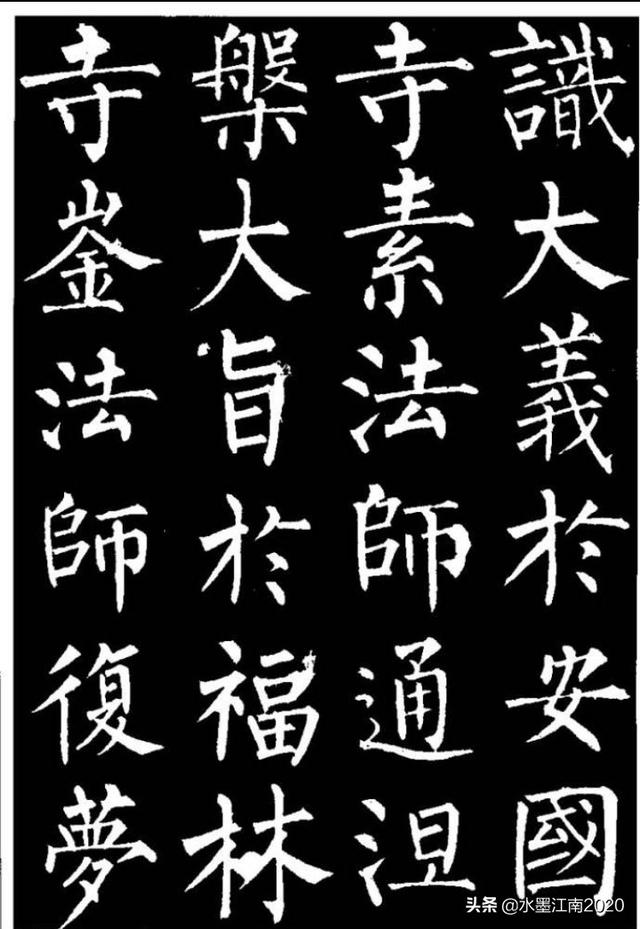 識大義於安國
寺素法師通涅
槃大旨於福林
寺崟法師復夢
头条 @水墨江南2020